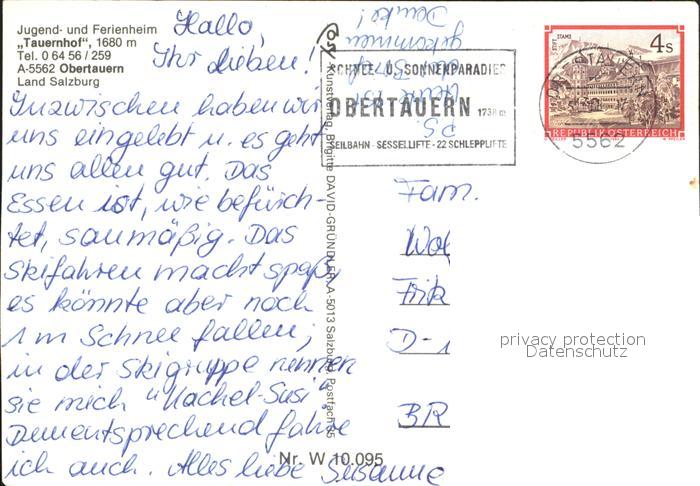 Jugend- und Ferienheim
„Tauernhof", 1680 m
Tel. 0 64 56 / 259
A-5562 Obertauern
Land Salzburg
Hallo,
Ihr Lieben!
Inzwischen haben wir
uns eingelebt u. es geht
uns allen gut. Das
Essen ist, wie befürch-
tet, saumäßig. Das
Skifahren macht spaß,
es könnte aber noch
1 m Schnee fallen;
in der Skigruppe nennen
sie mich "Kachel-Susi".
Dementsprechend fahre
ich auch. Alles liebe Susanne
P.S.
Heute ist
der Brief
gekommen
Danke!
Kunstverlag, Brigitte DAVID-GRÜNDLER, A-5013 Salzburg, Postfach 95
Nr. W 10.095
SCHNEE- U. SONNENPARADIES
OBERTAUERN 1738 m
SEILBAHN - SESSELLIFTE - 22 SCHLEPPLIFTE
OBERTAUERN
5562
STIFT STAMS
4 S
REPUBLIK ÖSTERREICH
Fam.
Wol
Frik
D-1
BR
privacy protection
Datenschutz